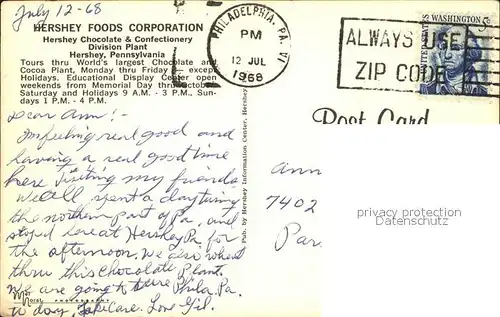 July 12-68
HERSHEY FOODS CORPORATION
Hershey Chocolate & Confectionery
Division Plant
Hershey, Pennsylvania
Tours thru World's largest Chocolate and
Cocoa Plant, Monday thru Friday — except
Holidays. Educational Display Center open
weekends from Memorial Day thru October
Saturday and Holidays 9 A.M. - 3 P.M., Sun-
days 1 P.M. - 4 P.M.
PHILADELPHIA, PA.
PM
12 JUL
1968
ALWAYS USE
ZIP CODE
UNITED STATES
WASHINGTON
Post Card
Dear Ann:-
Im feeling real good and
having a real good time
here visiting my friends.
We all spent a day
the northern part of Pa. and
stoped here at Hershey Pa for
the afternoon. We also
thru this Chocolate Plant.
We are going to Phila. Pa.
to day. Take Care. Love
Pub. by Hershey Information Center, Hershey
Ann
7402
Par
protection reserved
Datenschutz